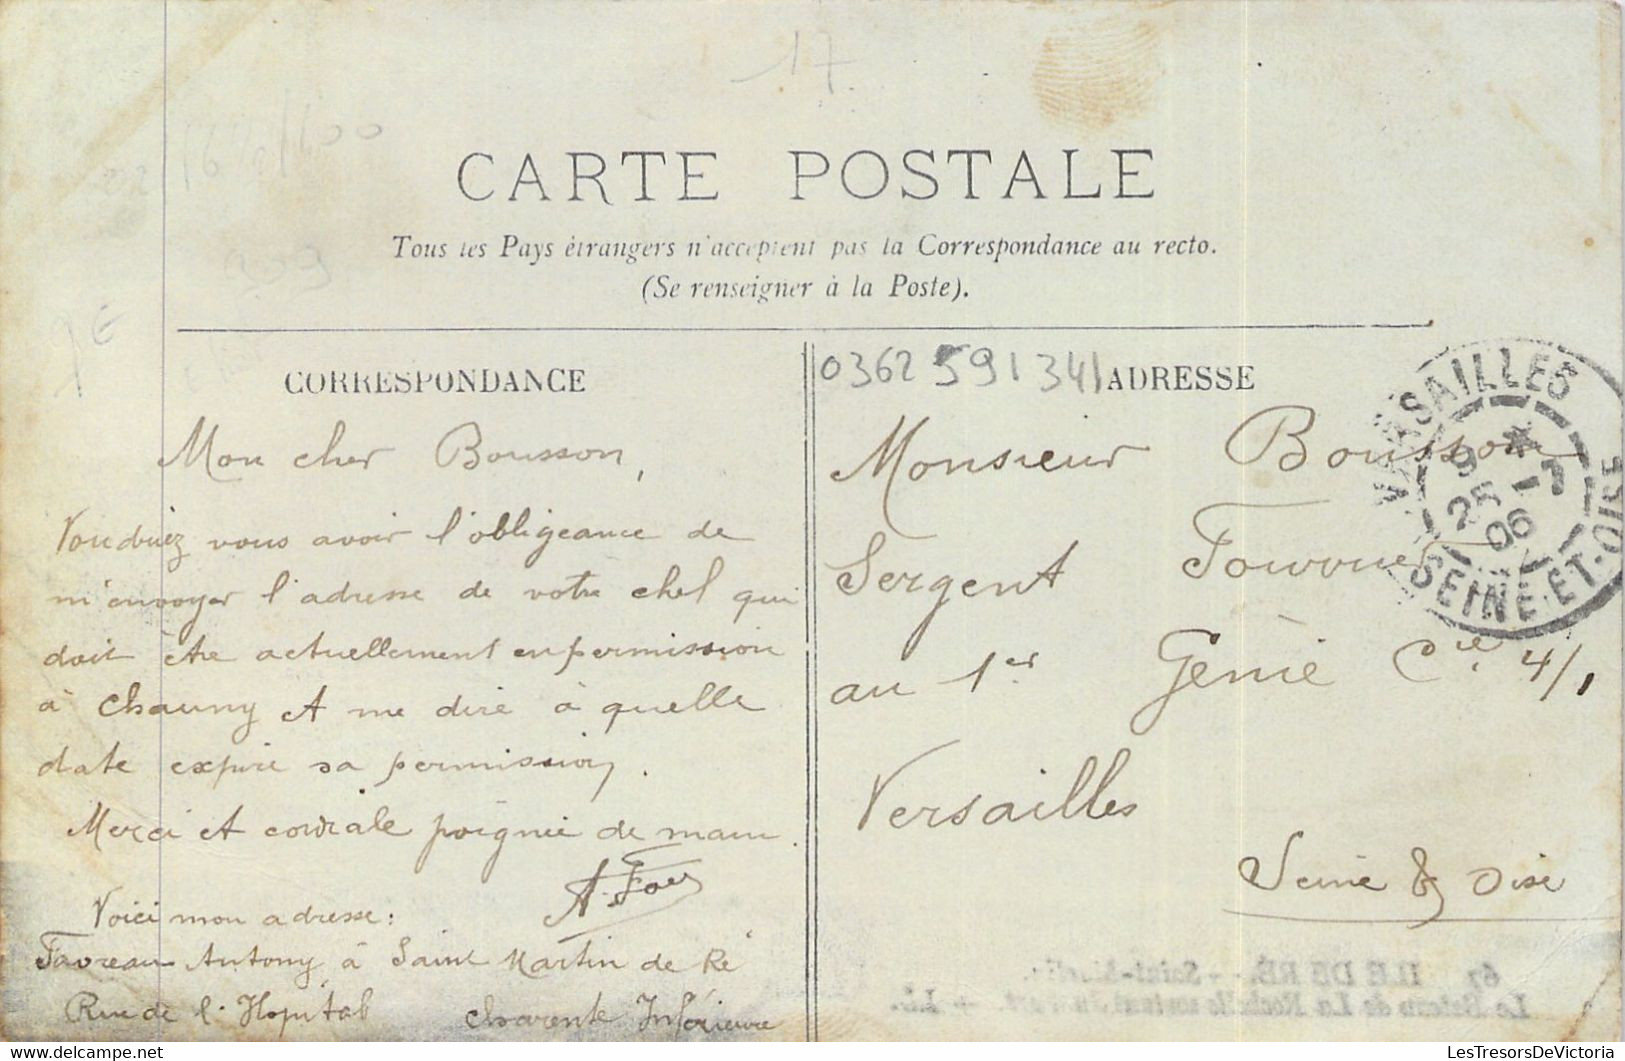 17
CARTE POSTALE
Tous les Pays étrangers n'acceptent pas la Correspondance au recto.
(Se renseigner à la Poste).
209
9€
CORRESPONDANCE
Mon cher Bousson,
Voudriez vous avoir l'obligeance de
m'envoyer l'adresse de votre chef qui
doit être actuellement en permission
à Chauny et me dire à quelle
date expire sa permission.
Merci et cordiale poignée de main.
A. Fav
Voici mon adresse:
Favreau Antony à Saint Martin de Ré
Rue de l'Hopital Charente Inférieure
0362 591 341
ADRESSE
Monsieur Bousson
Sergent Fourrier
au 1er Génie Cie 4/1
Versailles
Seine & Oise
VERSAILLES
25 - 1
06
SEINE-ET-OISE
67 ILE DE RÉ. - Saint-Martin
Le Bateau de La Rochelle sortant du Port. - LL.
LesTresorsDeVictoria